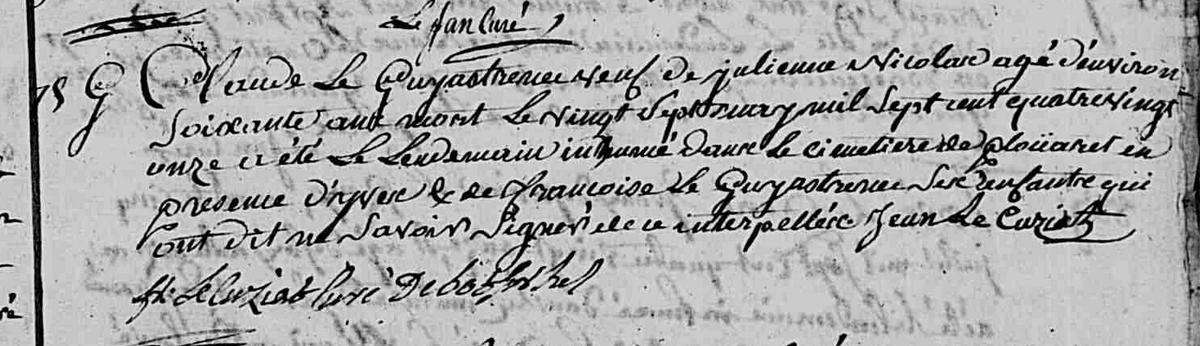 Le jan Curé
75 G Claude Le Guyastrenec veuf de julienne Nicolas agé d'environ
soixante ans mort Le vingt Sept may mil sept cent quatre vingt
onze a été Le Lendemain inhumé dans Le cimetiere de ploüaret en
presence d'yves & de françoise Le Guyastrenec Ses enfants qui
ont dit ne Savoir Signer de ce interpellés Jean Le Cuziat
Le Cuziat Curé